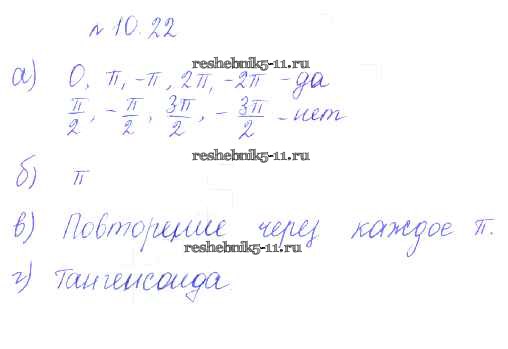 № 10.22
reshebnik5-11.ru
а) 0, π, -π, 2π, -2π - да
π/2, -π/2, 3π/2, -3π/2 - нет
reshebnik5-11.ru
б) π
в) Повторение через каждое π.
reshebnik5-11.ru
г) Тангенсоида.
reshebnik5-11.ru